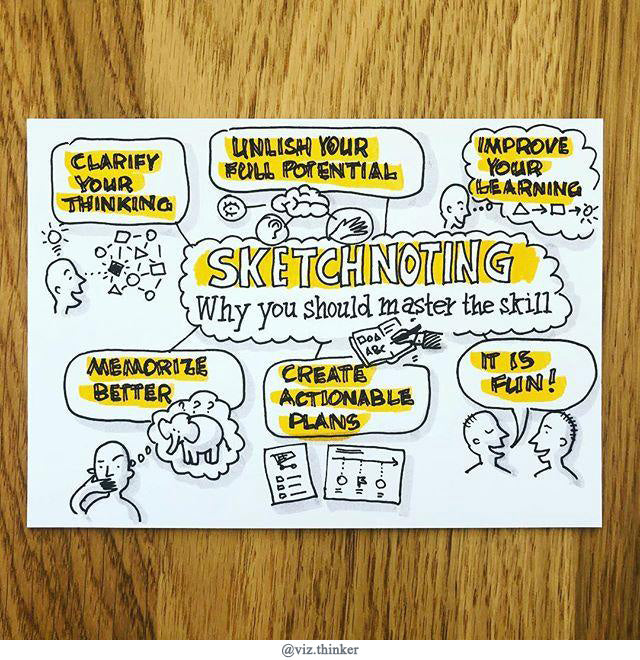 CLARIFY
YOUR
THINKING
UNLISH YOUR
FULL POTENTIAL
IMPROVE
YOUR
LEARNING
SKETCHNOTING
Why you should master the skill
ABC
MEMORIZE
BETTER
CREATE
ACTIONABLE
PLANS
IT IS
FUN!
@viz.thinker